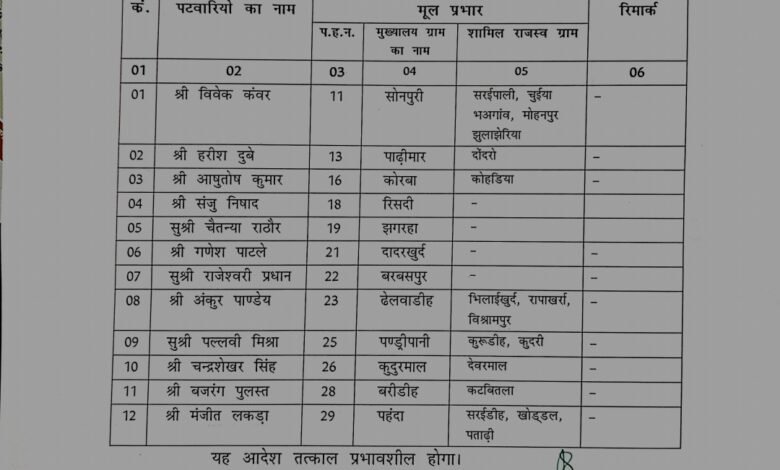 कं. पटवारियो का नाम मूल प्रभार रिमार्क
प.ह.न. मुख्यालय ग्राम शामिल राजस्व ग्राम
का नाम
01 02 03 04 05 06
01 श्री विवेक कंवर 11 सोनपुरी सरईपाली, चुईया –
भअगांव, मोहनपुर
झुलाझेरिया
02 श्री हरीश दुबे 13 पाढ़ीमार दोंदरो –
03 श्री आषुतोष कुमार 16 कोरबा कोहडिया –
04 श्री संजु निषाद 18 रिसदी –
05 सुश्री चैतन्या राठौर 19 झगरहा –
06 श्री गणेश पाटले 21 दादरखुर्द – –
07 सुश्री राजेश्वरी प्रधान 22 बरबसपुर – –
08 श्री अंकुर पाण्डेय 23 ढेलवाडीह भिलाईखुर्द, रापाखर्रा, –
विश्रामपुर
09 सुश्री पल्लवी मिश्रा 25 पण्ड्रीपानी कुरूडीह, कुदरी –
10 श्री चन्द्रशेखर सिंह 26 कुदुरमाल देवरमाल –
11 श्री बजरंग पुलस्त 28 बरीडीह कटबितला –
12 श्री मंजीत लकड़ा 29 पहंदा सरईडीह, खोड्डल, –
पताढ़ी
यह आदेश तत्काल प्रभावशील होगा।